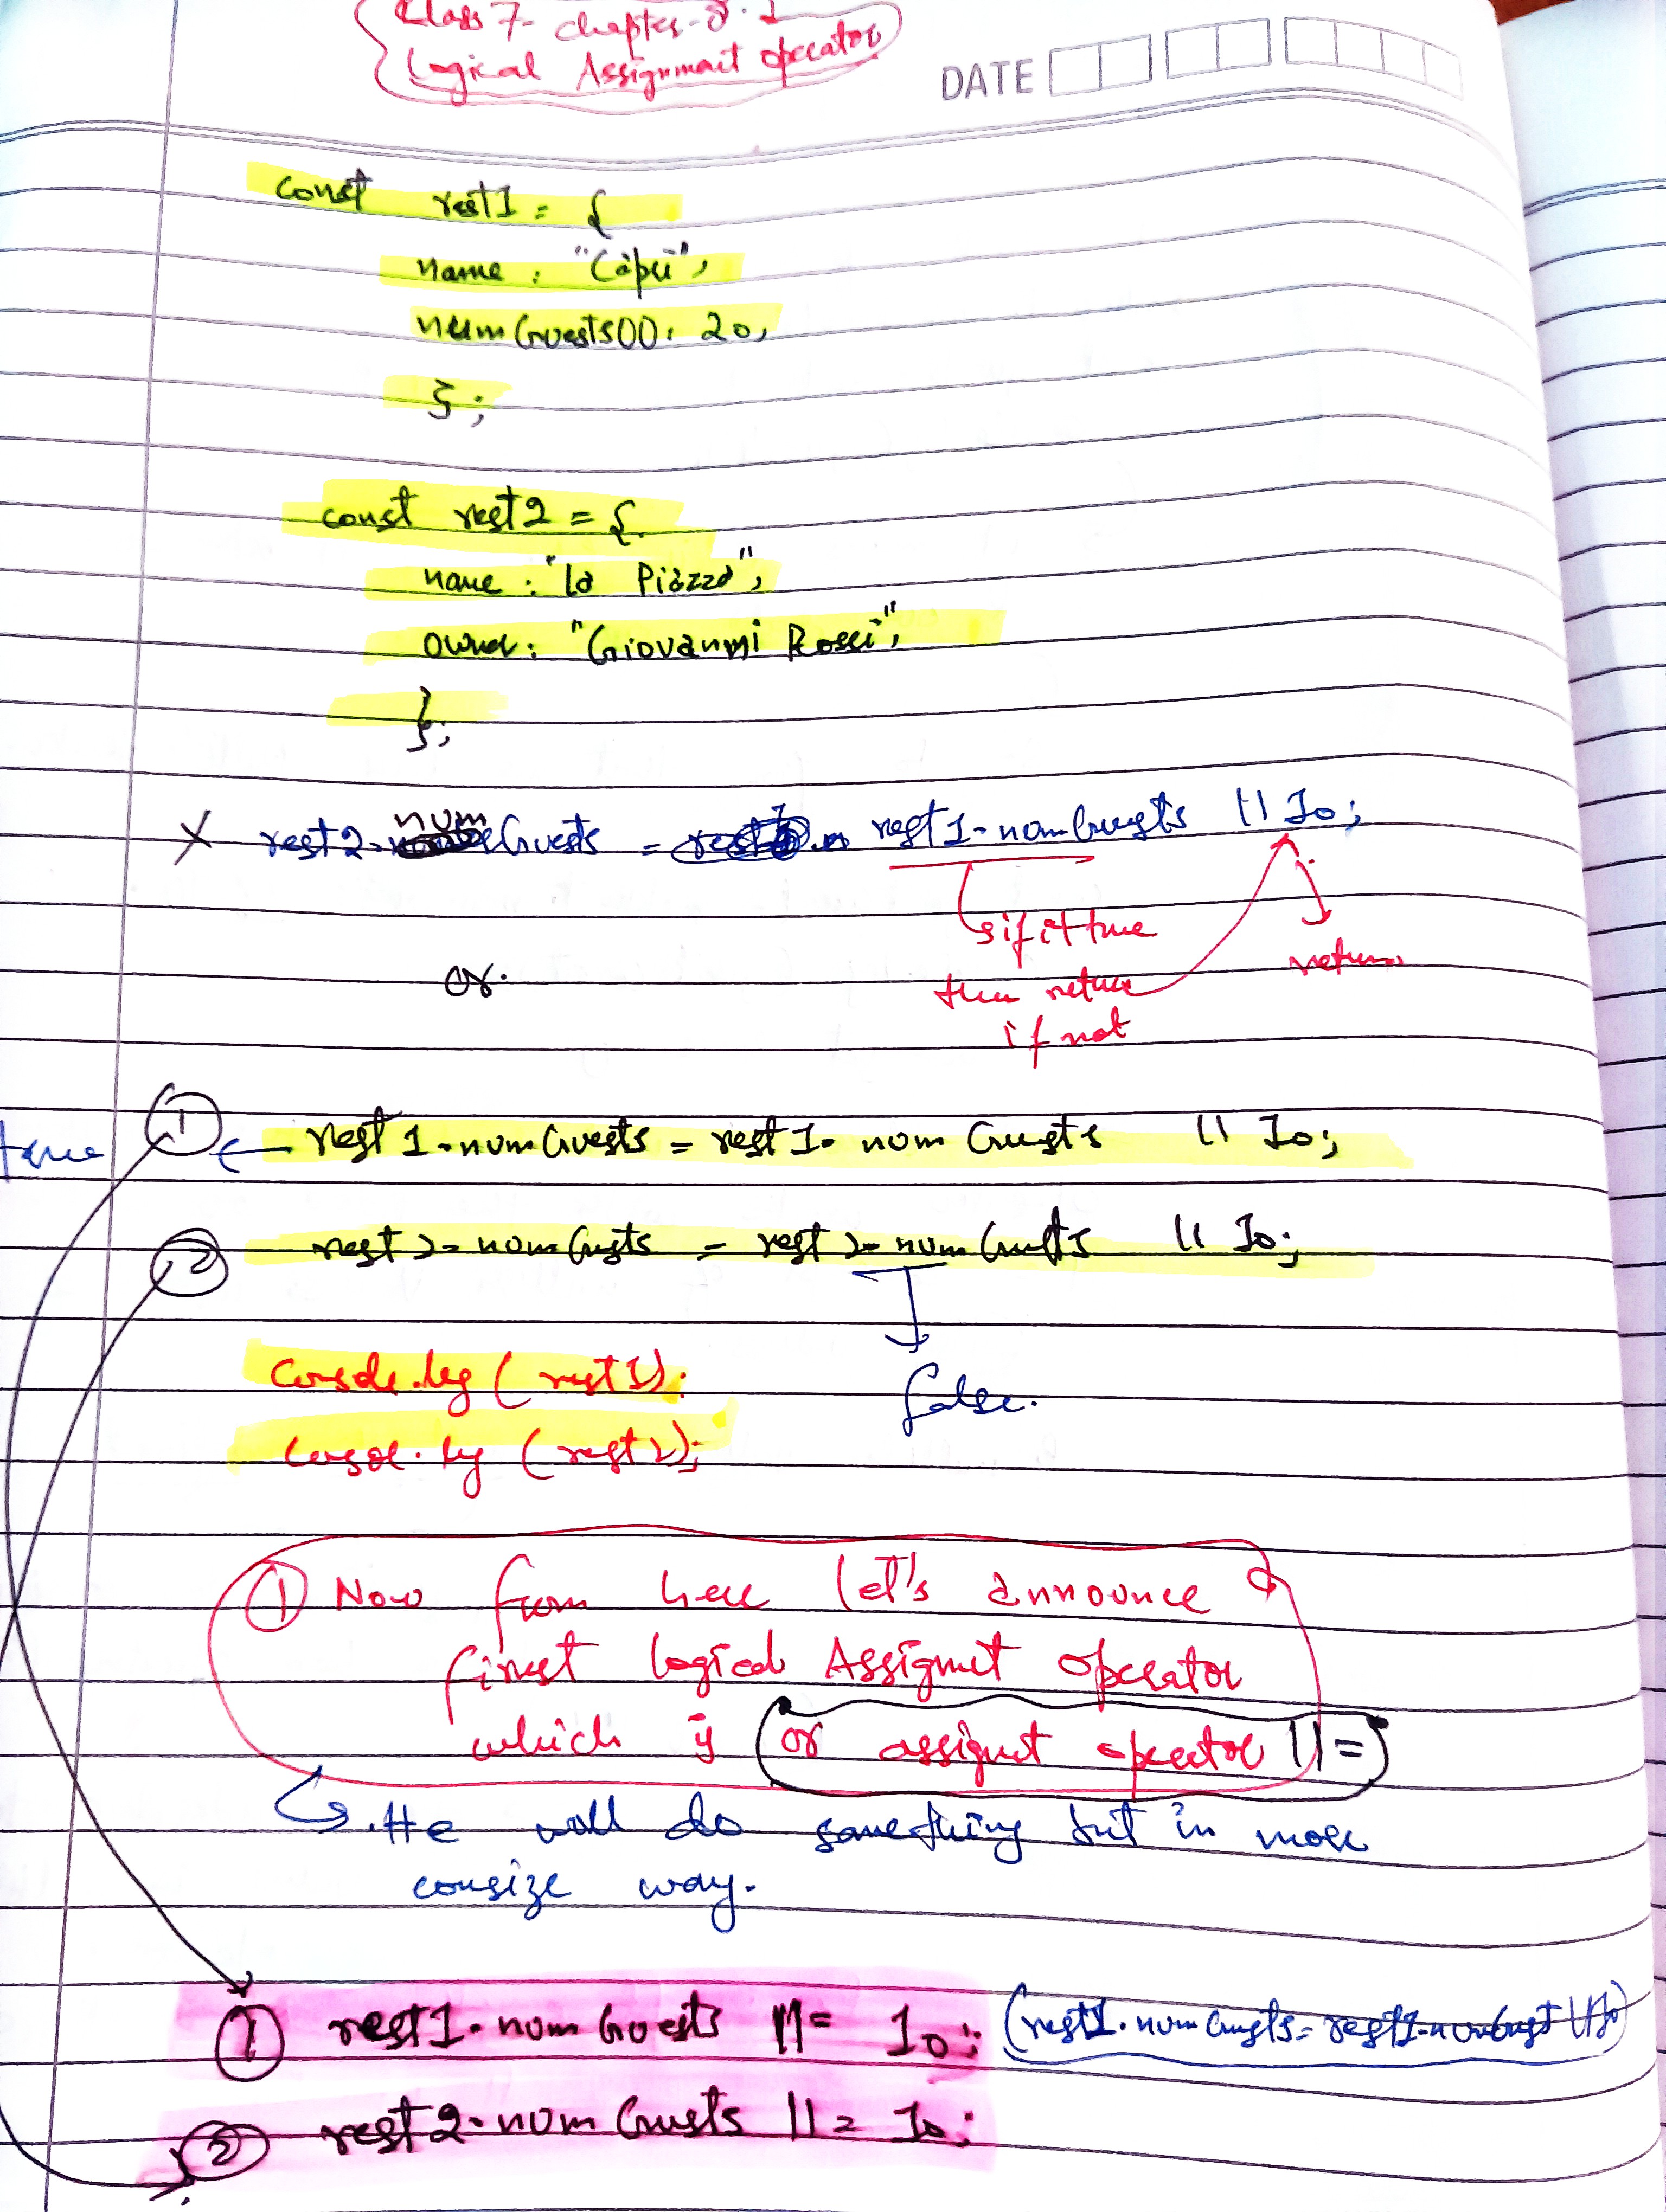 Class 7- chapter-8.1
Logical Assignmait operator
DATE
const rest1 = {
name : "Capri",
numGuests00: 20,
};
const rest2 = {
name : "la Piazza",
owner: "Giovanni Rossi",
};
X rest2.numGuests = rest1.numGuests || 10;
↳ if it true
then return
if not
return
or.
true ← ① rest1.numGuests = rest1.numGuests || 10;
② rest2.numGuests = rest2.numGuests || 10;
false.
Console.log(rest1);
Consol.log(rest2);
① Now from here let's announce
first logical Assigmet operator
which is or assignt operator ||=
↳ He will do something but in more
consize way.
① rest1.numGuests ||= 10; (rest1.numGuests = rest1.numGuest || 10)
② rest2.numGuests ||= 10;